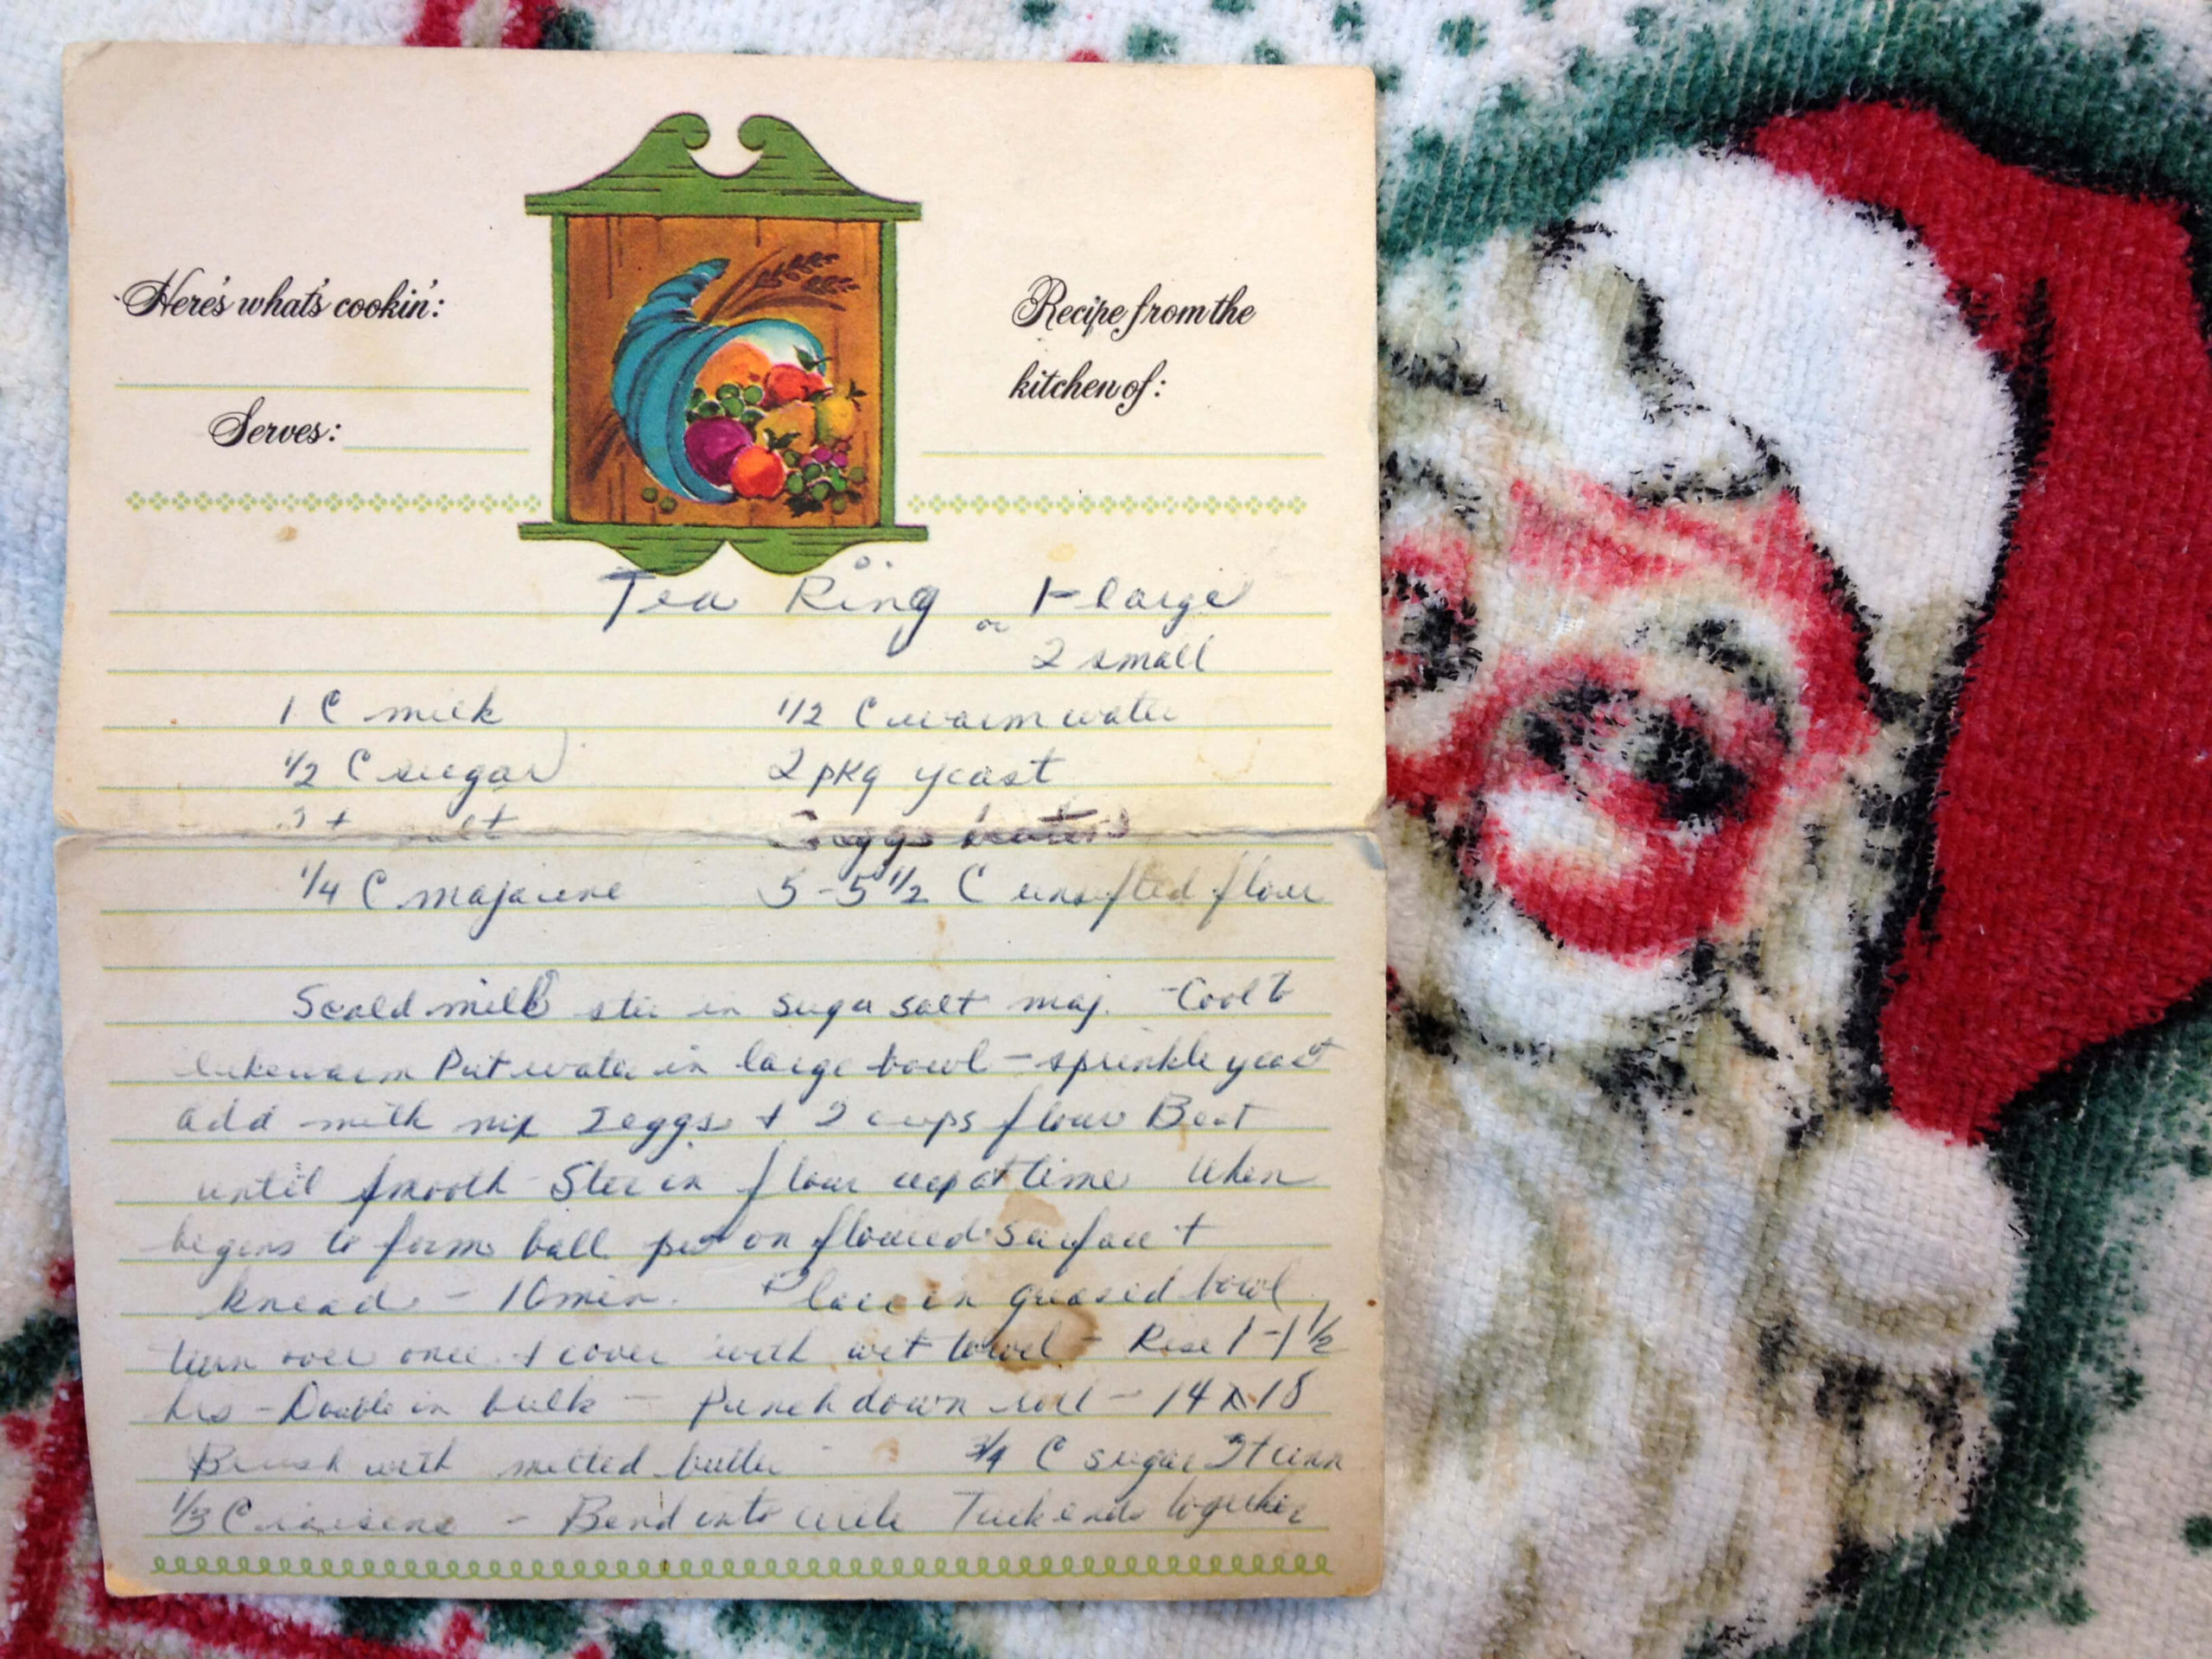 Here's what's cookin':
Recipe from the
kitchen of:
Serves:
Tea Ring 1-large
or
2 small
1 C milk 1/2 C warm water
1/2 C sugar 2 pkg yeast
salt eggs
1/4 C majarine 5-5 1/2 C unsifted flour
Scald milk stir in sugar salt maj. - Cool to
lukewarm Put water in large bowl - sprinkle yeast
add milk mix 2 eggs + 2 cups flour Beat
until smooth - Stir in flour cup at time When
begins to form ball put on floured surface +
knead - 10 min. Place in greased bowl
turn over once + cover with wet towel - Rise 1-1 1/2
hrs - Double in bulk - Punch down roll - 14 x 18
Brush with melted butter - 3/4 C sugar 2t cinn
1/3 C raisens - Bend into circle Tuck ends together